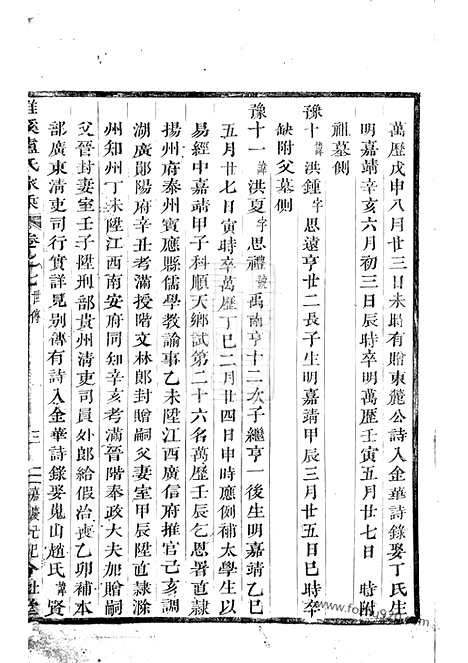 萬歷戊申八月廿三日未時有贈東麓公詩入金華詩錄娶丁氏生
明嘉靖辛亥六月初三日辰時卒明萬歷壬寅五月廿七日　時附
祖墓側
豫十諱洪鍾字思遠亨廿二長子生明嘉靖甲辰三月廿五日巳時卒
缺附父墓側
豫十一諱洪夏字思禮號禹南亨十二次子繼亨一後生明嘉靖乙巳
五月廿七日寅時卒萬歷丁巳二月廿四日申時應例補太學生以
易經中嘉靖甲子科順天鄉試第二十六名萬歷壬辰乞恩署直隷
揚州府泰州寶應縣儒學教諭事乙未陞江西廣信府推官己亥調
湖廣鄖陽府辛丑考滿授階文林郎封贈嗣父妻室甲辰陞直隷滁
州知州丁未陞江西南安府同知辛亥考滿晉階奉政大夫加贈嗣
父晉封妻室壬子陞刑部貴州清吏司員外郎給假治喪乙卯補本
部廣東清吏司行實詳見别傳有詩入金華詩錄娶嵬山趙氏諱賢
盧氏家乘 卷之七 世傳 三